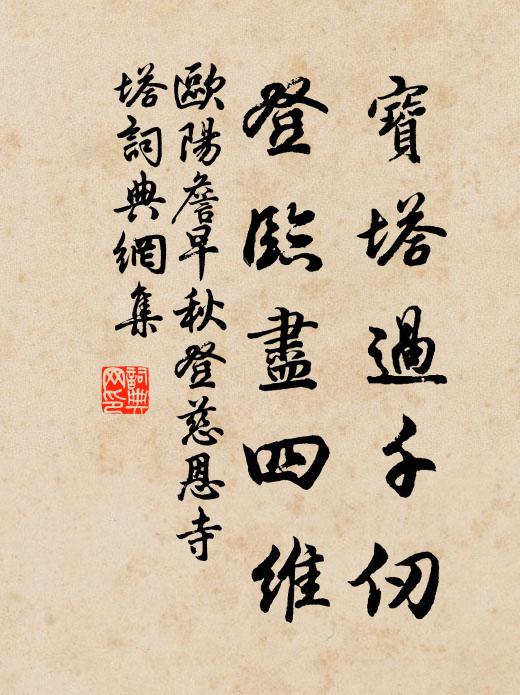 寶塔過千仞
登臨盡四維
歐陽詹早秋登慈恩寺
塔詞典網集
詞典
网印